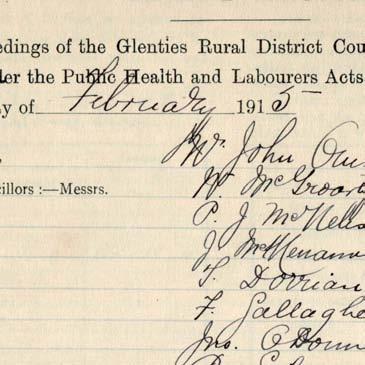 edings of the Glenties Rural District Cou
er the Public Health and Labourers Acts
y of February 1915
Mr. John
illors :—Messrs.
W. McGroart
P. J McNelis
J. McMenamı
T. Dorrian
F. Gallaghe
Jno. O'Donn